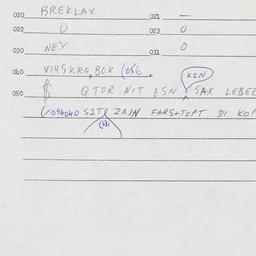 020 BREKLAX 021 —
022 0 023 0
030 NEY 031 0
040 VI45KRO,BOK (056.
KIN
050 $ QTOR NIT ESN SAX LEBEE
(1094040 SITO ZAJN FARS+TOPT DI KOP